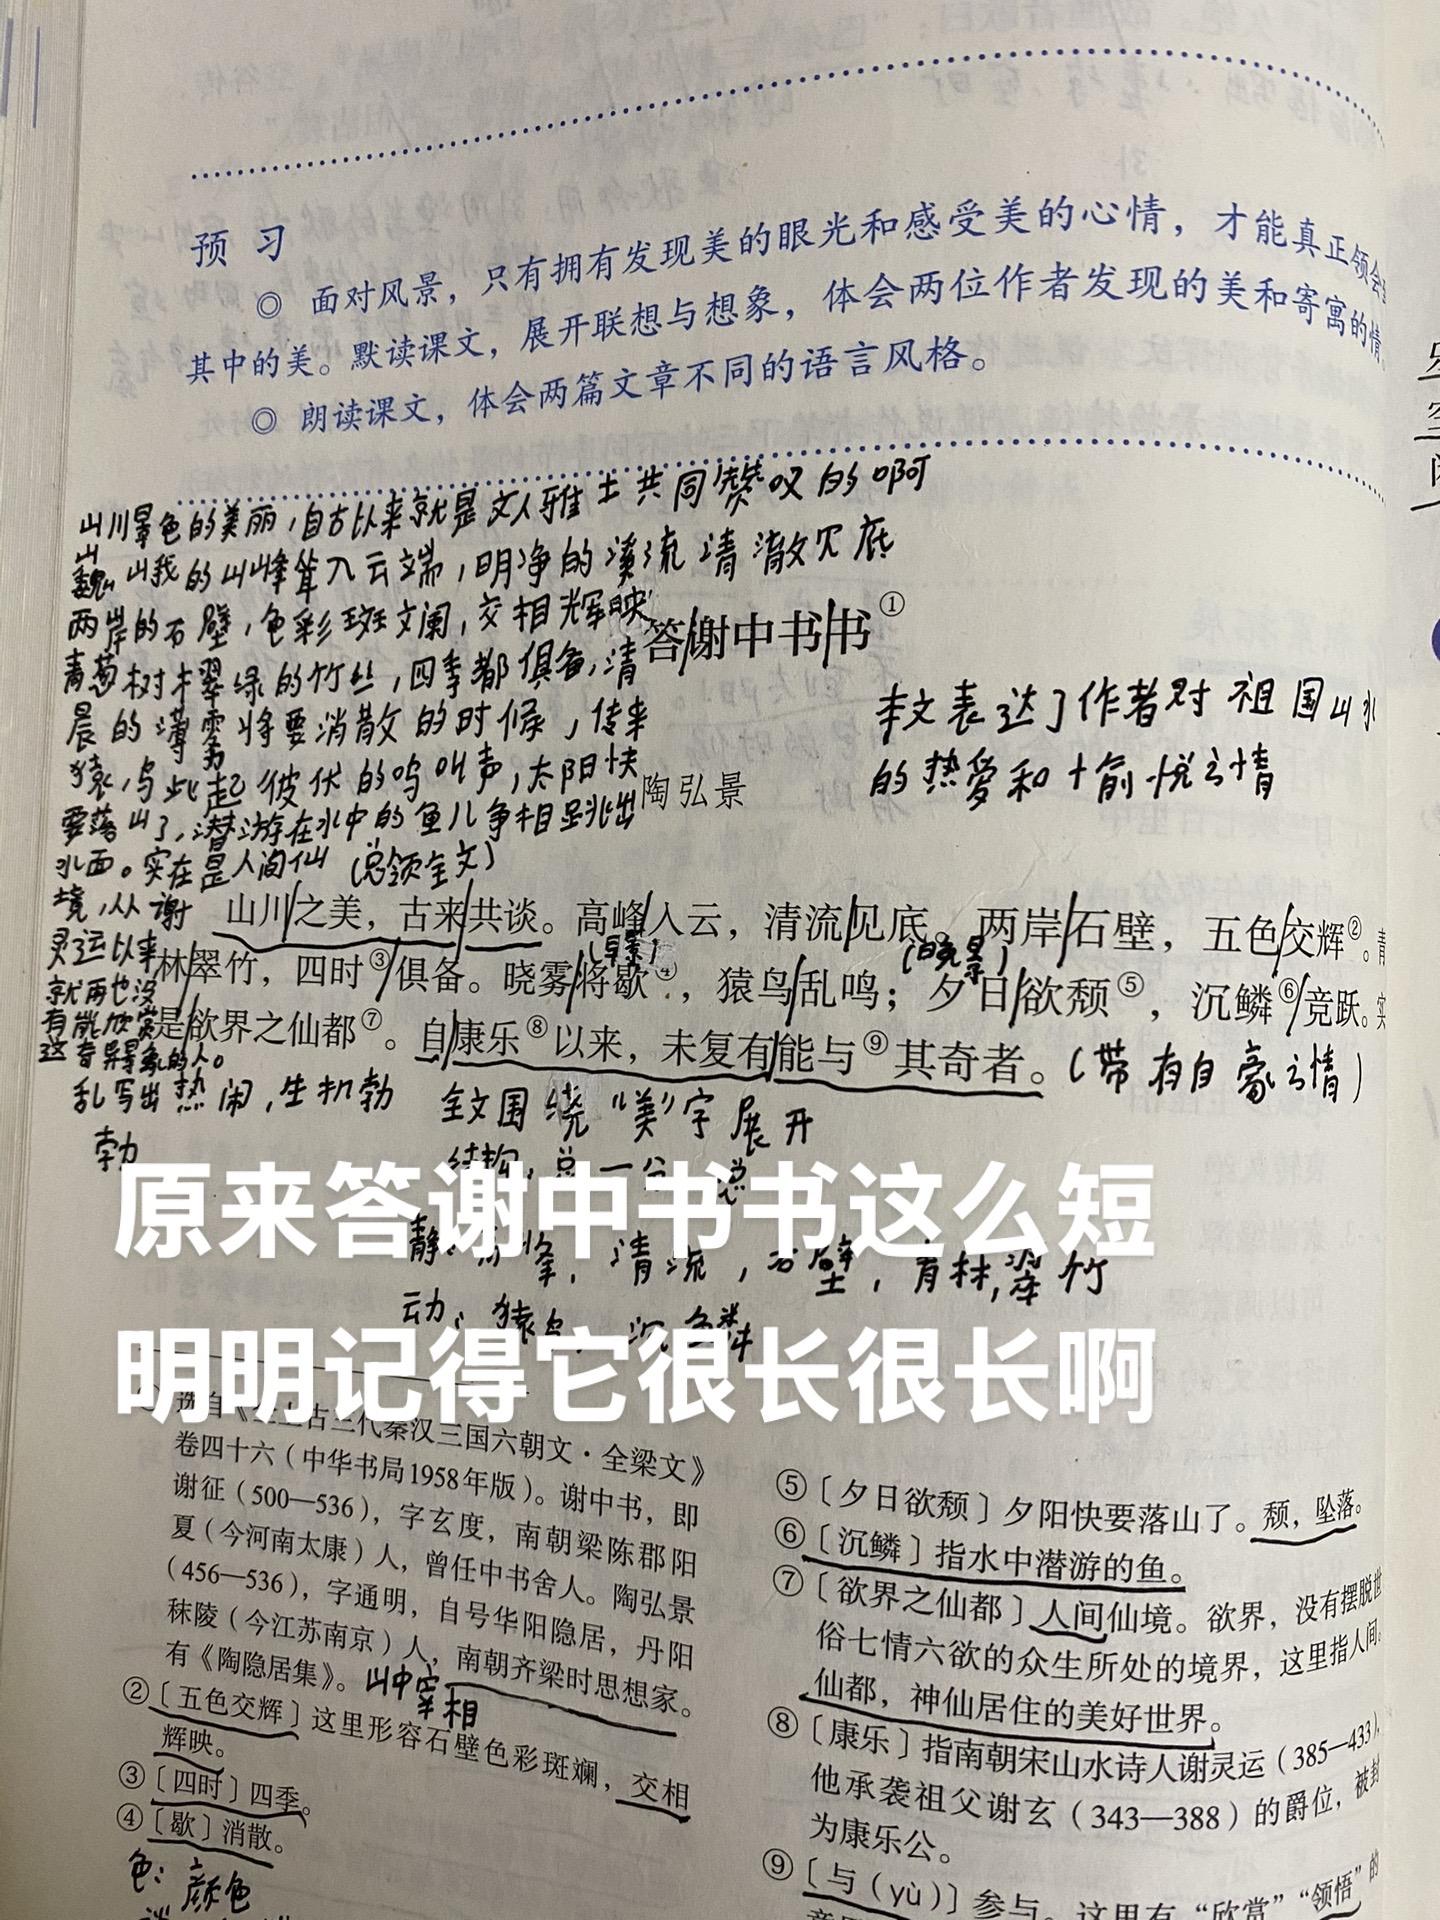 预 习
◎ 面对风景，只有拥有发现美的眼光和感受美的心情，才能真正领会
其中的美。默读课文，展开联想与想象，体会两位作者发现的美和寄寓的情
◎ 朗读课文，体会两篇文章不同的语言风格。
山川景色的美丽，自古以来就是文人雅士共同赞叹的啊
巍峨的山峰耸入云端，明净的溪流清澈见底
两岸的石壁，色彩斑斓，交相辉映
青葱树木翠绿的竹丝，四季都俱备，清
晨的薄雾将要消散的时候，传来
猿，鸟此起彼伏的鸣叫声，太阳快
要落山了，潜游在水中的鱼儿争相跳出
水面。实在是人间仙
境，从谢
灵运以来
就再也没
有能欣赏
这奇异景象的人。
答/谢中书/书①
陶弘景
本文表达了作者对祖国山水
的热爱和愉悦之情
(总领全文)
山川/之美，古来/共谈。高峰/入云，清流/见底。两岸/石壁，五色/交辉②。青
(早景)
(晚景)
林/翠竹，四时③/俱备。晓雾/将歇④，猿鸟/乱鸣；夕日/欲颓⑤，沉鳞⑥/竞跃。实
是/欲界之仙都⑦。自/康乐⑧以来，未复有/能与⑨其奇者。(带有自豪之情)
乱写出热闹，生机勃
勃
全文围绕“美”字展开
结构：总一分 总
静： 峰，清流，石壁，青林，翠竹
动：猿鸟 沉鳞
原来答谢中书书这么短
明明记得它很长很长啊
选自《全上古三代秦汉三国六朝文·全梁文》
卷四十六（中华书局1958年版）。谢中书，即
谢征（500—536），字玄度，南朝梁陈郡阳
夏（今河南太康）人，曾任中书舍人。陶弘景
（456—536），字通明，自号华阳隐居，丹阳
秣陵（今江苏南京）人，南朝齐梁时思想家。
有《陶隐居集》。山中宰相
②〔五色交辉〕这里形容石壁色彩斑斓，交相
辉映。
③〔四时〕四季。
④〔歇〕消散。
色：颜色
⑤〔夕日欲颓〕夕阳快要落山了。颓，坠落。
⑥〔沉鳞〕指水中潜游的鱼。
⑦〔欲界之仙都〕人间仙境。欲界，没有摆脱世
俗七情六欲的众生所处的境界，这里指人间。
仙都，神仙居住的美好世界。
⑧〔康乐〕指南朝宋山水诗人谢灵运（385—433），
他承袭祖父谢玄（343—388）的爵位，被封
为康乐公。
⑨〔与（yù）〕参与。这里有“欣赏”“领悟”的